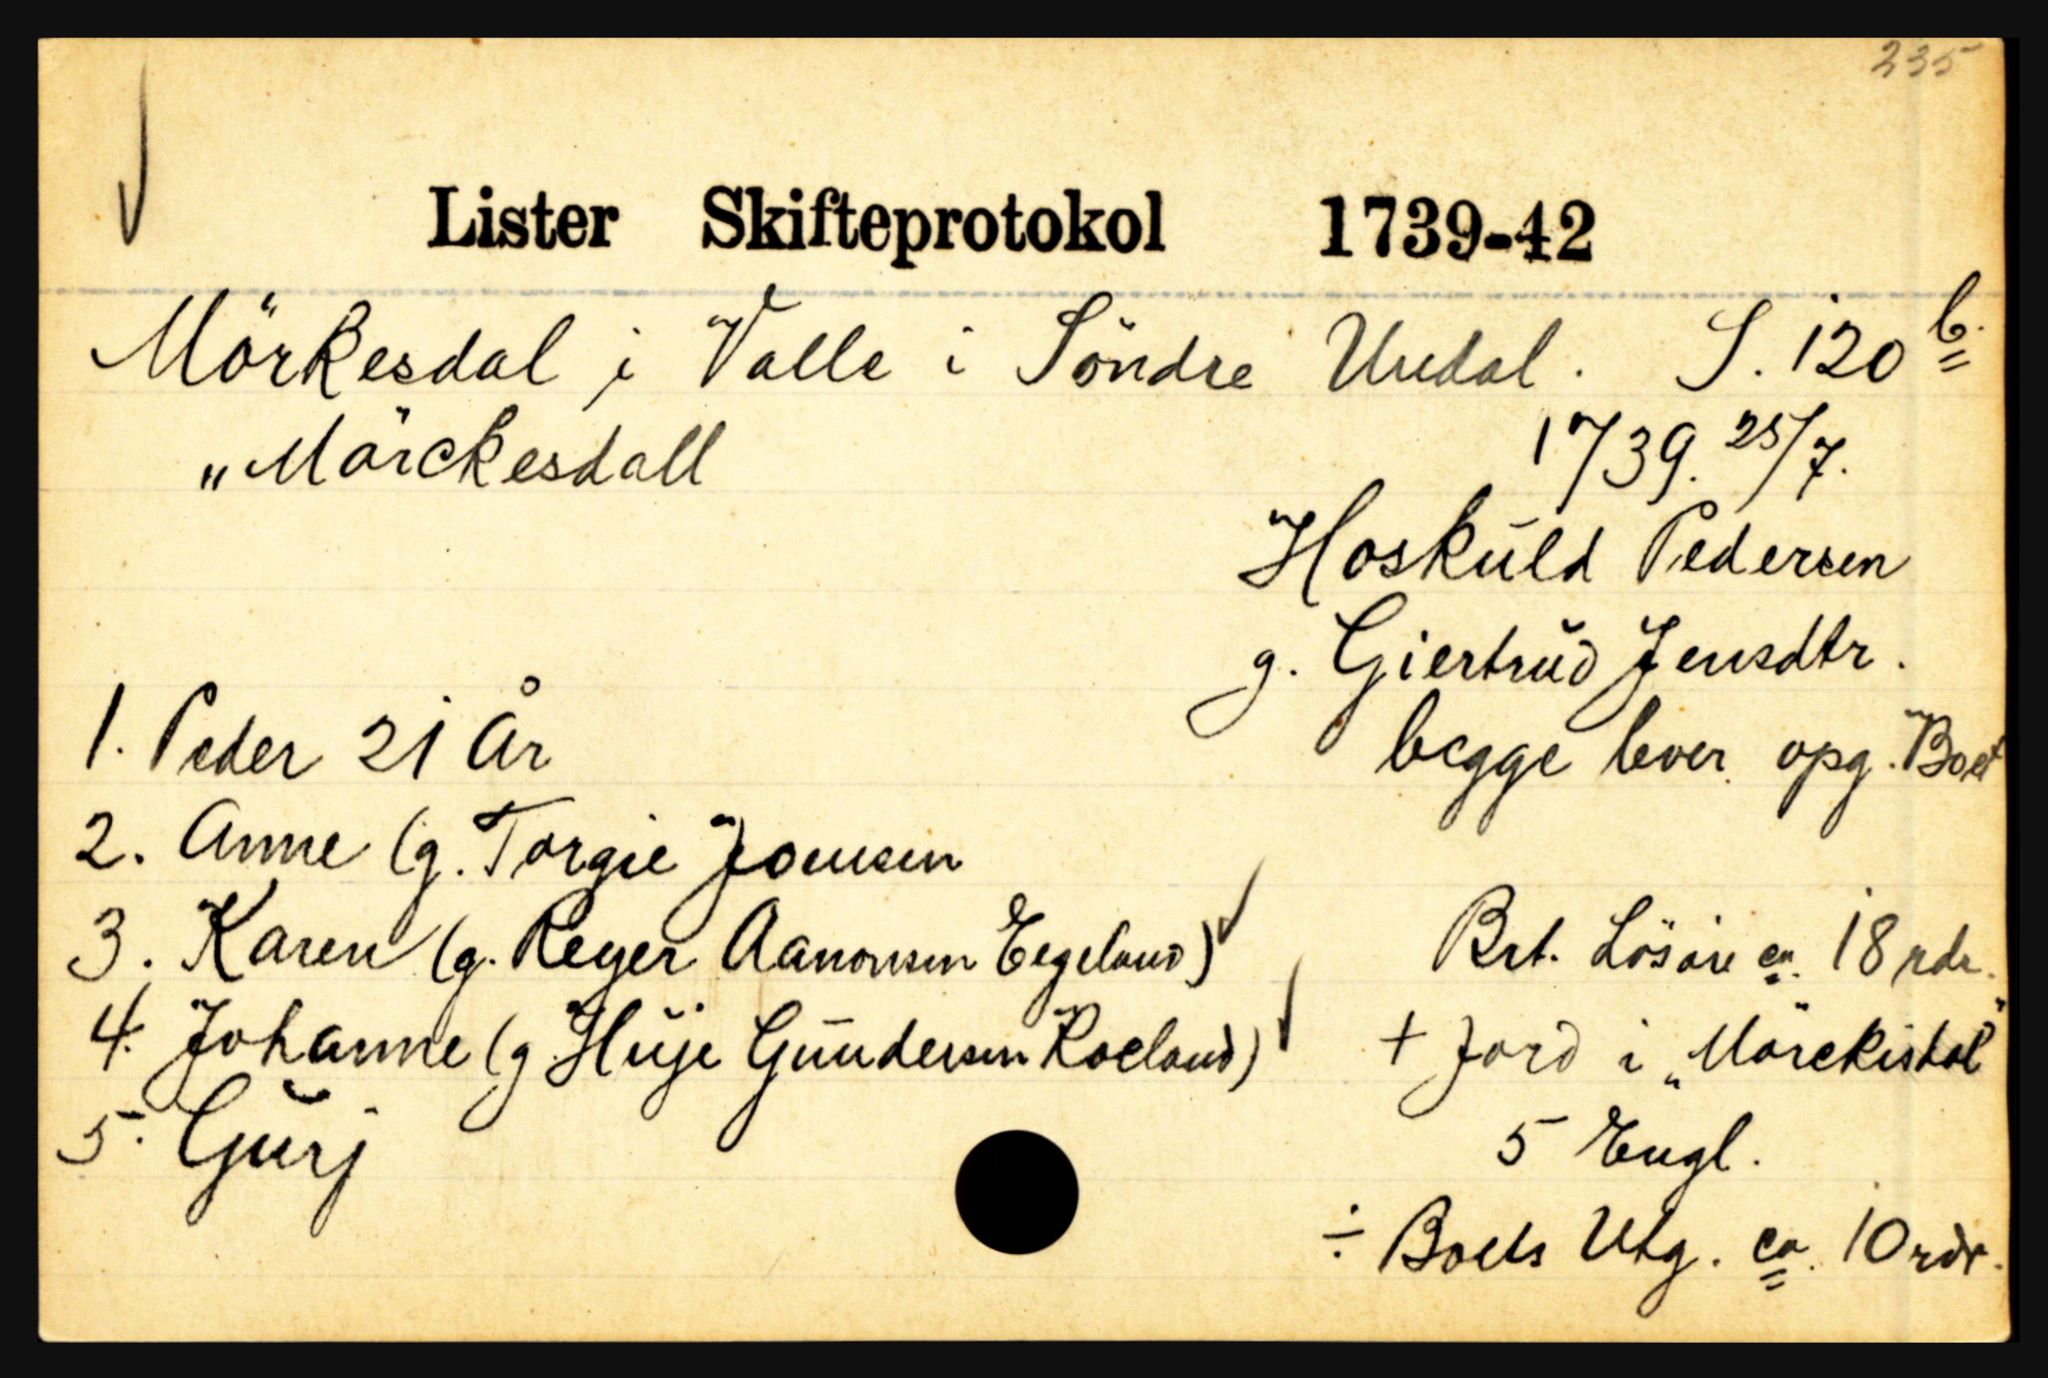 235
Lister Skifteprotokol 1739-42
Mörkesdal i Valle i Söndre Undal. S. 120 b.
„Mörckesdall 1739. 25/7.
Hoskuld Pedersen
g. Giertrud Jensdtr.
1. Peder 21 År begge lever opg. Boet
2. Anne (g. Torgie Jonsen
3. Karen (g. Reyer Aanonsen Eegeland) Brt. Lösöre ca. 18 rdr.
4. Johanne (g. Huje Gundersen Roeland) + Jord i „Mörckisdal"
5. Gurj 5 Engl.
÷ Boets Utg. ca. 10 rdr.